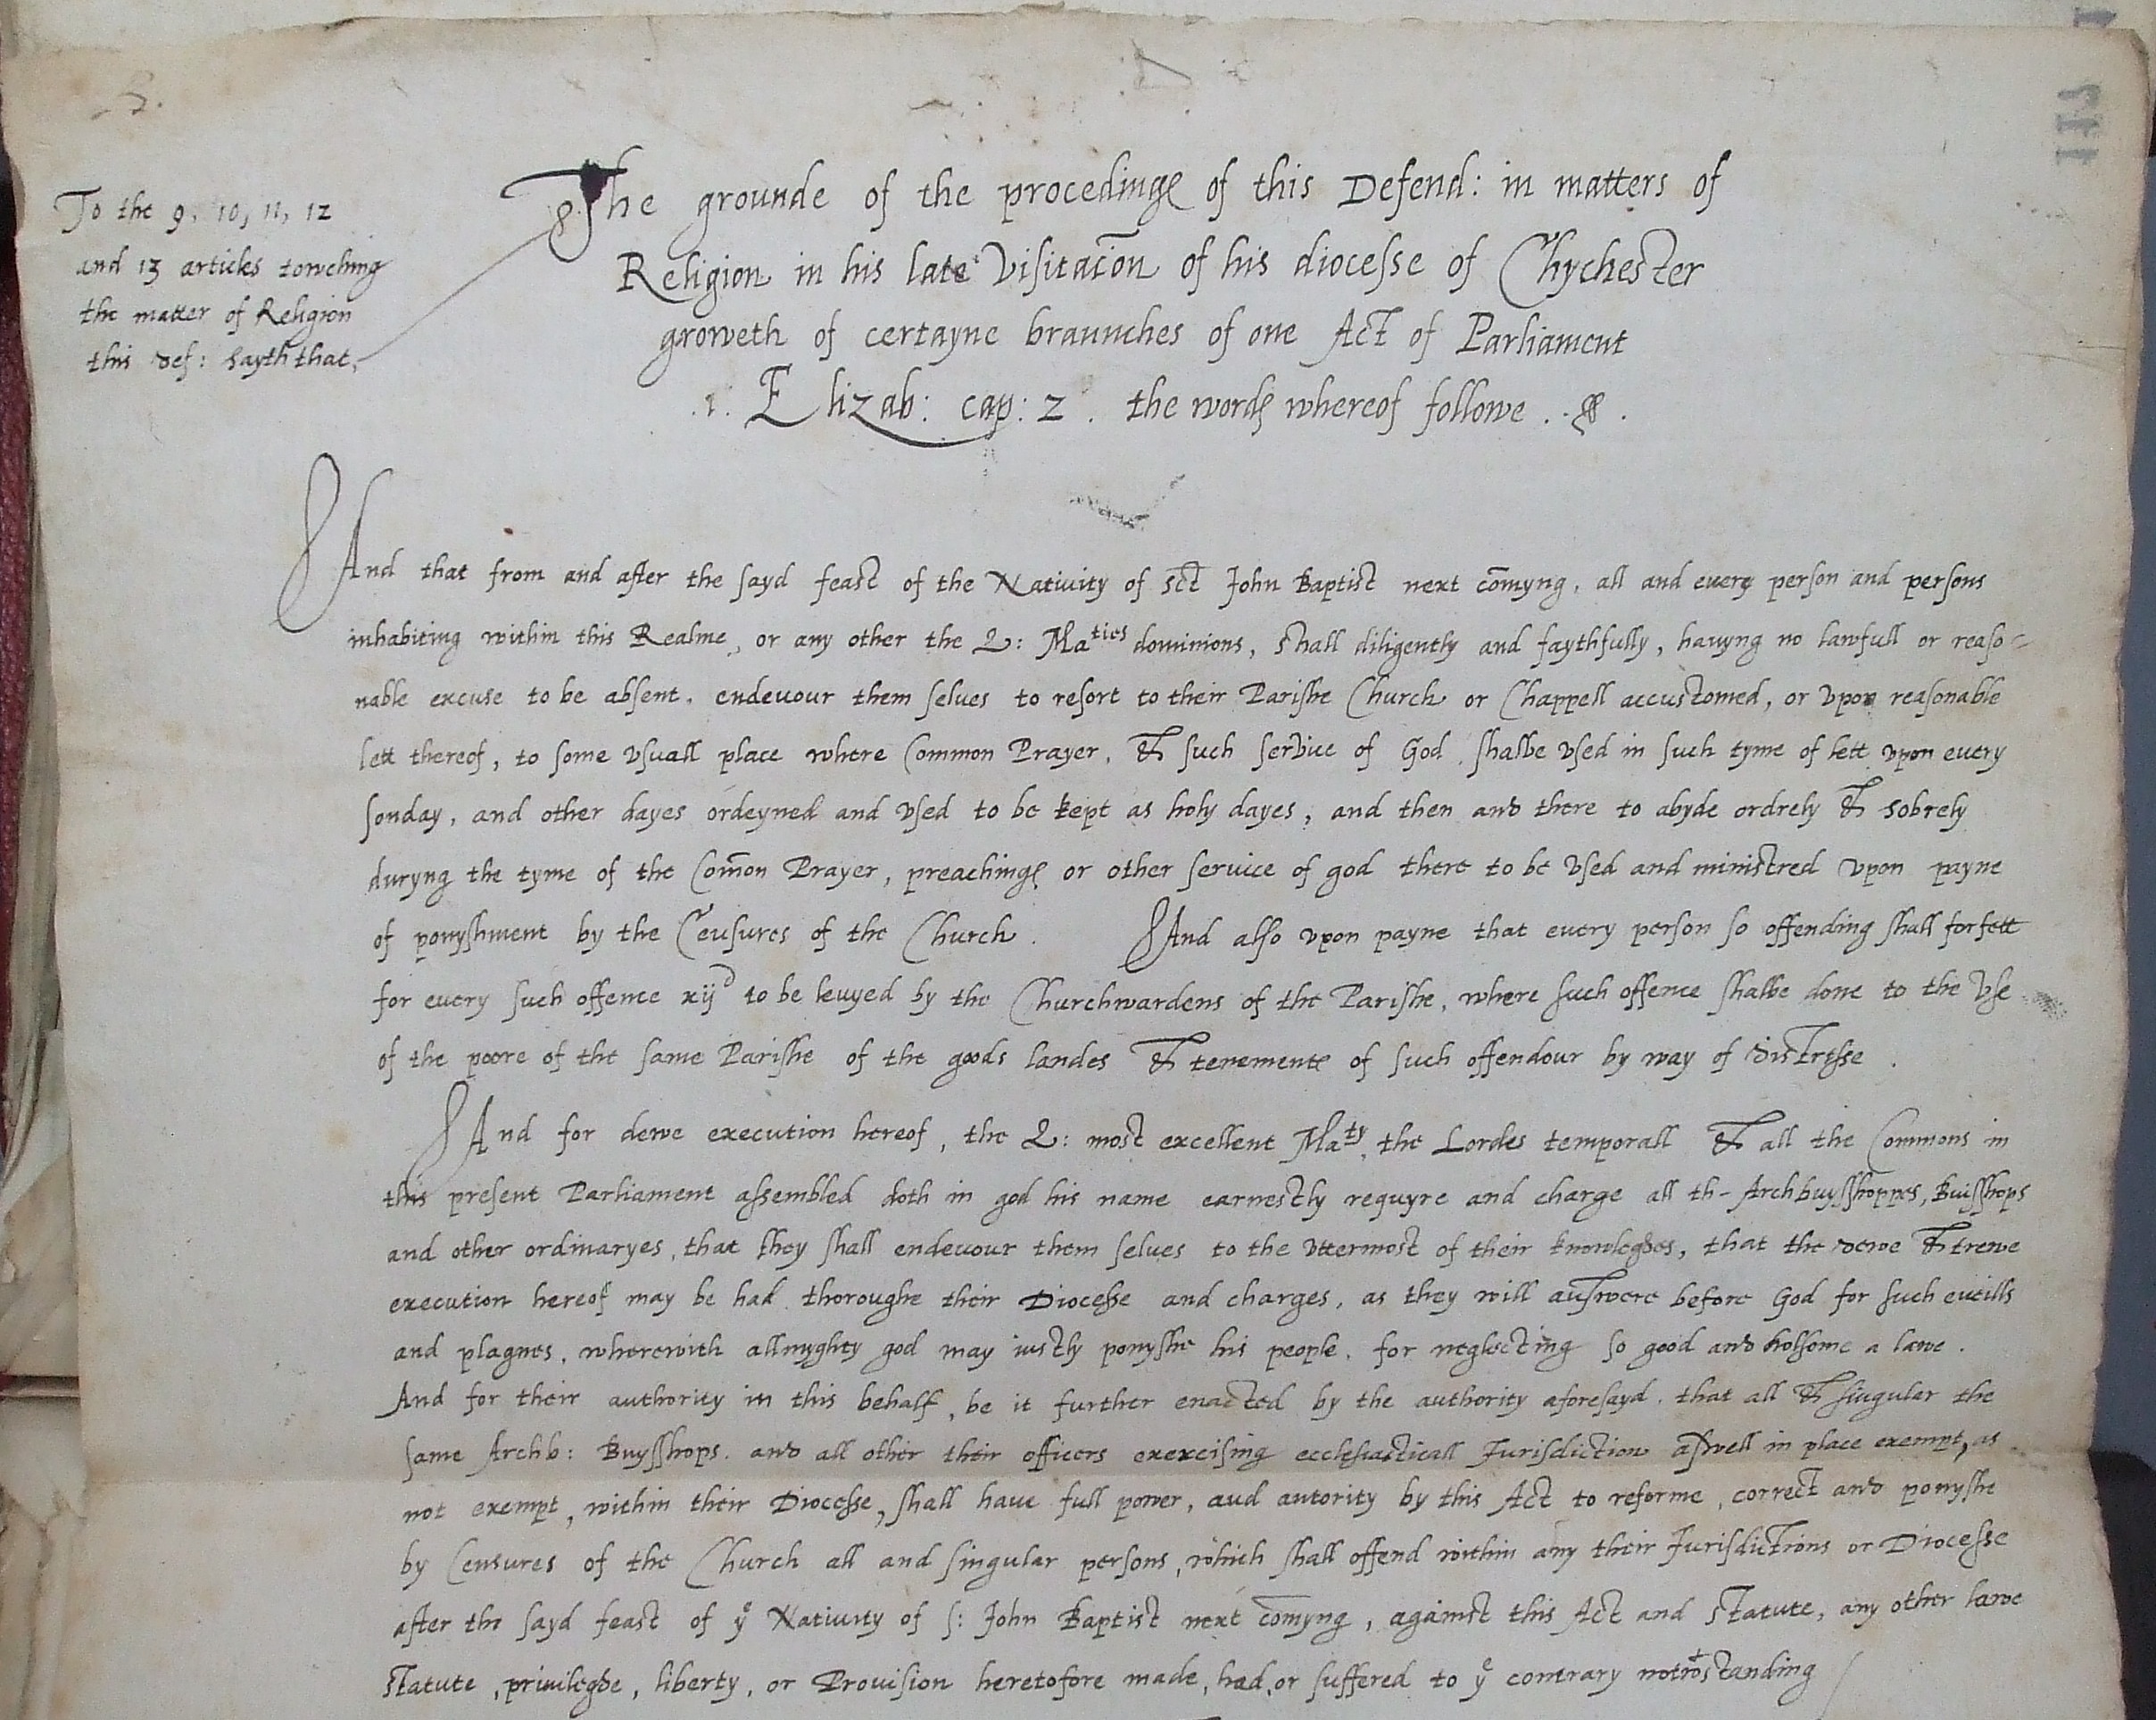 112
To the 9, 10, 11, 12
and 13 articles towching
the matter of Religion
this def: sayth that,
The grounde of the procedinges of this Defend: in matters of
Religion in his late Visitacōn of his diocesse of Chychester
groweth of certayne braunches of one Act of Parliament
.1. Elizab: cap: 2. the wordes whereof followe . &.
And that from and after the sayd feast of the Nativity of sct John Baptist next cōmyng, all and euery person and persons
inhabiting within this Realme, or any other the Q: Maties dominions, shall diligently and faythfully, hauyng no lawfull or reaso-
nable excuse to be absent, endeuour them selues to resort to their Parishe Church or Chappell accustomed, or vpon reasonable
lett thereof, to some vsuall place where Common Prayer, & such seruice of God shalbe vsed in such tyme of lett vpon euery
sonday, and other dayes ordeyned and vsed to be kept as holy dayes, and then and there to abyde ordrely & sobrely
duryng the tyme of the Comōn Prayer, preachinges or other seruice of god there to be vsed and ministred vpon payne
of ponyshment by the Censures of the Church. And also vpon payne that euery person so offending shall forfett
for euery such offence xijd to be leuyed by the Churchwardens of the Parishe, where such offence shalbe done to the vse
of the poore of the same Parishe of the goods landes & tenementes of such offendour by way of distresse.
And for dewe execution hereof, the Q: most excellent Maty, the Lordes temporall & all the Commons in
this present Parliament assembled doth in god his name earnestly requyre and charge all th-Archbuysshoppes, Buisshops
and other ordinaryes, that they shall endeuour them selues to the vttermost of their knowlegdes, that the dewe & trewe
execution hereof may be had thoroughe their Diocesse and charges, as they will answere before God for such euills
and plagues, wherewith allmyghty god may iustly ponyshe his people, for neglecting so good and holsome a lawe.
And for their authority in this behalf, be it further enacted by the authority aforesayd, that all & singular the
same Archb: Buysshops, and all other their officers exercising ecclesiasticall Jurisdiction aswell in place exempt, as
not exempt, within their Diocesse, shall haue full power, and autority by this Act to reforme, correct and ponyshe
by Censures of the Church all and singular persons, which shall offend within any their Jurisdictions or Diocesse
after the sayd feast of ye Natiuity of s: John Baptist next cōmyng, against this Act and statute, any other lawe
statute, priuilegde, liberty, or Prouision heretofore made, had, or suffered to ye contrary notwtstanding